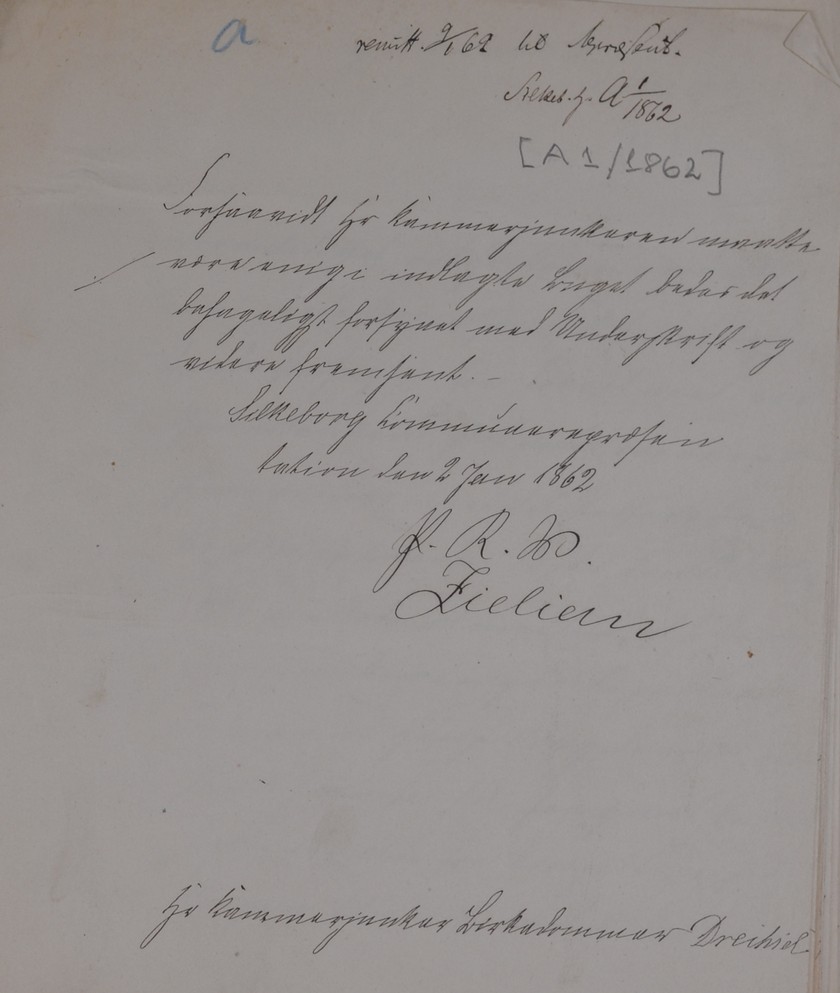 a
remitt. 9/1 62 til Repræsent.
Silkeb. J. A 1/1862
[A 1/1862]
Forsaavidt Hr Kammerjunkeren maatte
være enig i indlagte bedes det
behageligt forsynet med Underskrift og
videre fremsent. –
Silkeborg Communerepræsen
tation den 2 Jan 1862
P. R. V.
Zielian
Hr Kammerjunker Birkedommer Dreihsel